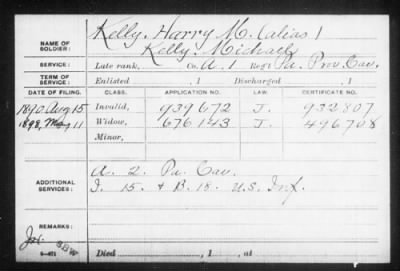 Kelly, Harry M. (alias)
NAME OF SOLDIER: Kelly, Michael
Late rank, Co. A. 1 Reg't Pa. Prov. Cav.
TERM OF SERVICE: Enlisted , 1 Discharged , 1
DATE OF FILING. CLASS. APPLICATION NO. LAW. CERTIFICATE NO.
1890 Aug 15 Invalid, 939672 J. 932807
1898, 11 Widow, 676143 J. 496708
Minor,
ADDITIONAL SERVICES: A. 2. Pa. Cav.
I. 15. & B. 18. U.S. Inf.
REMARKS:
SBW
Died , 1 , at